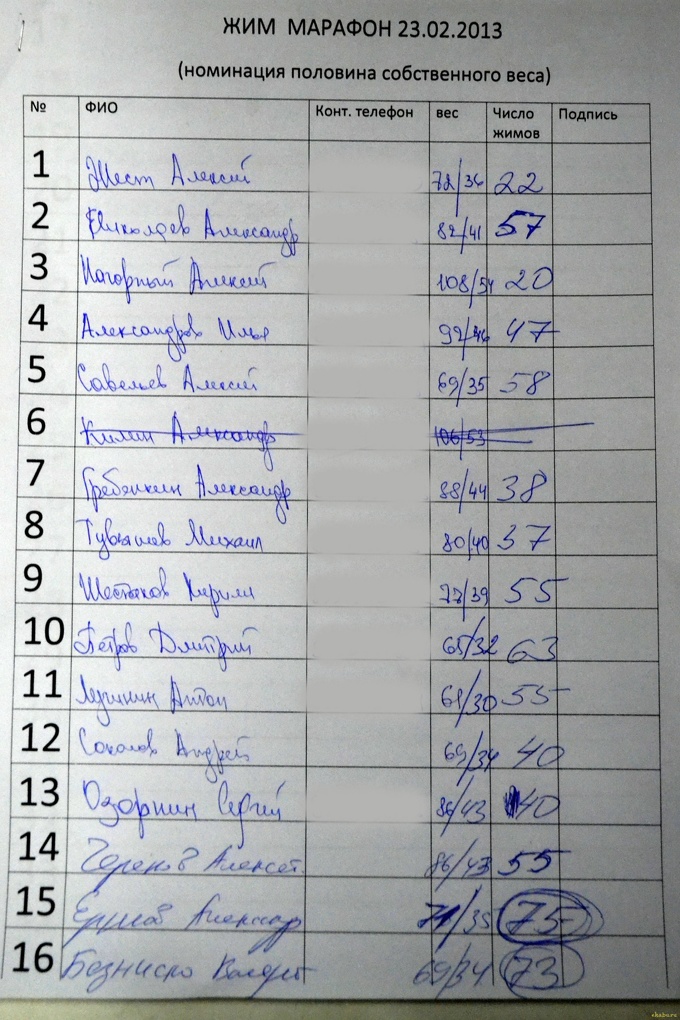 ЖИМ МАРАФОН 23.02.2013
(номинация половина собственного веса)
№ ФИО Конт. телефон вес Число жимов Подпись
1 Жест Алексей 72/36 22
2 Николаев Александр 82/41 57
3 Нагорный Алексей 108/54 20
4 Александров Илья 92/46 47
5 Савельев Алексей 69/35 58
6 Александр 106/53
7 Гребёнкин Александр 88/44 38
8 Михаил 80/40 37
9 Шестаков Кирилл 77/39 55
10 Петров Дмитрий 65/32 63
11 Антон 61/30 55
12 Соколов Андрей 69/34 40
13 Озорнин Сергей 86/43 40
14 Алексей 86/43 55
15 Александр 71/35 75
16 69/34 73